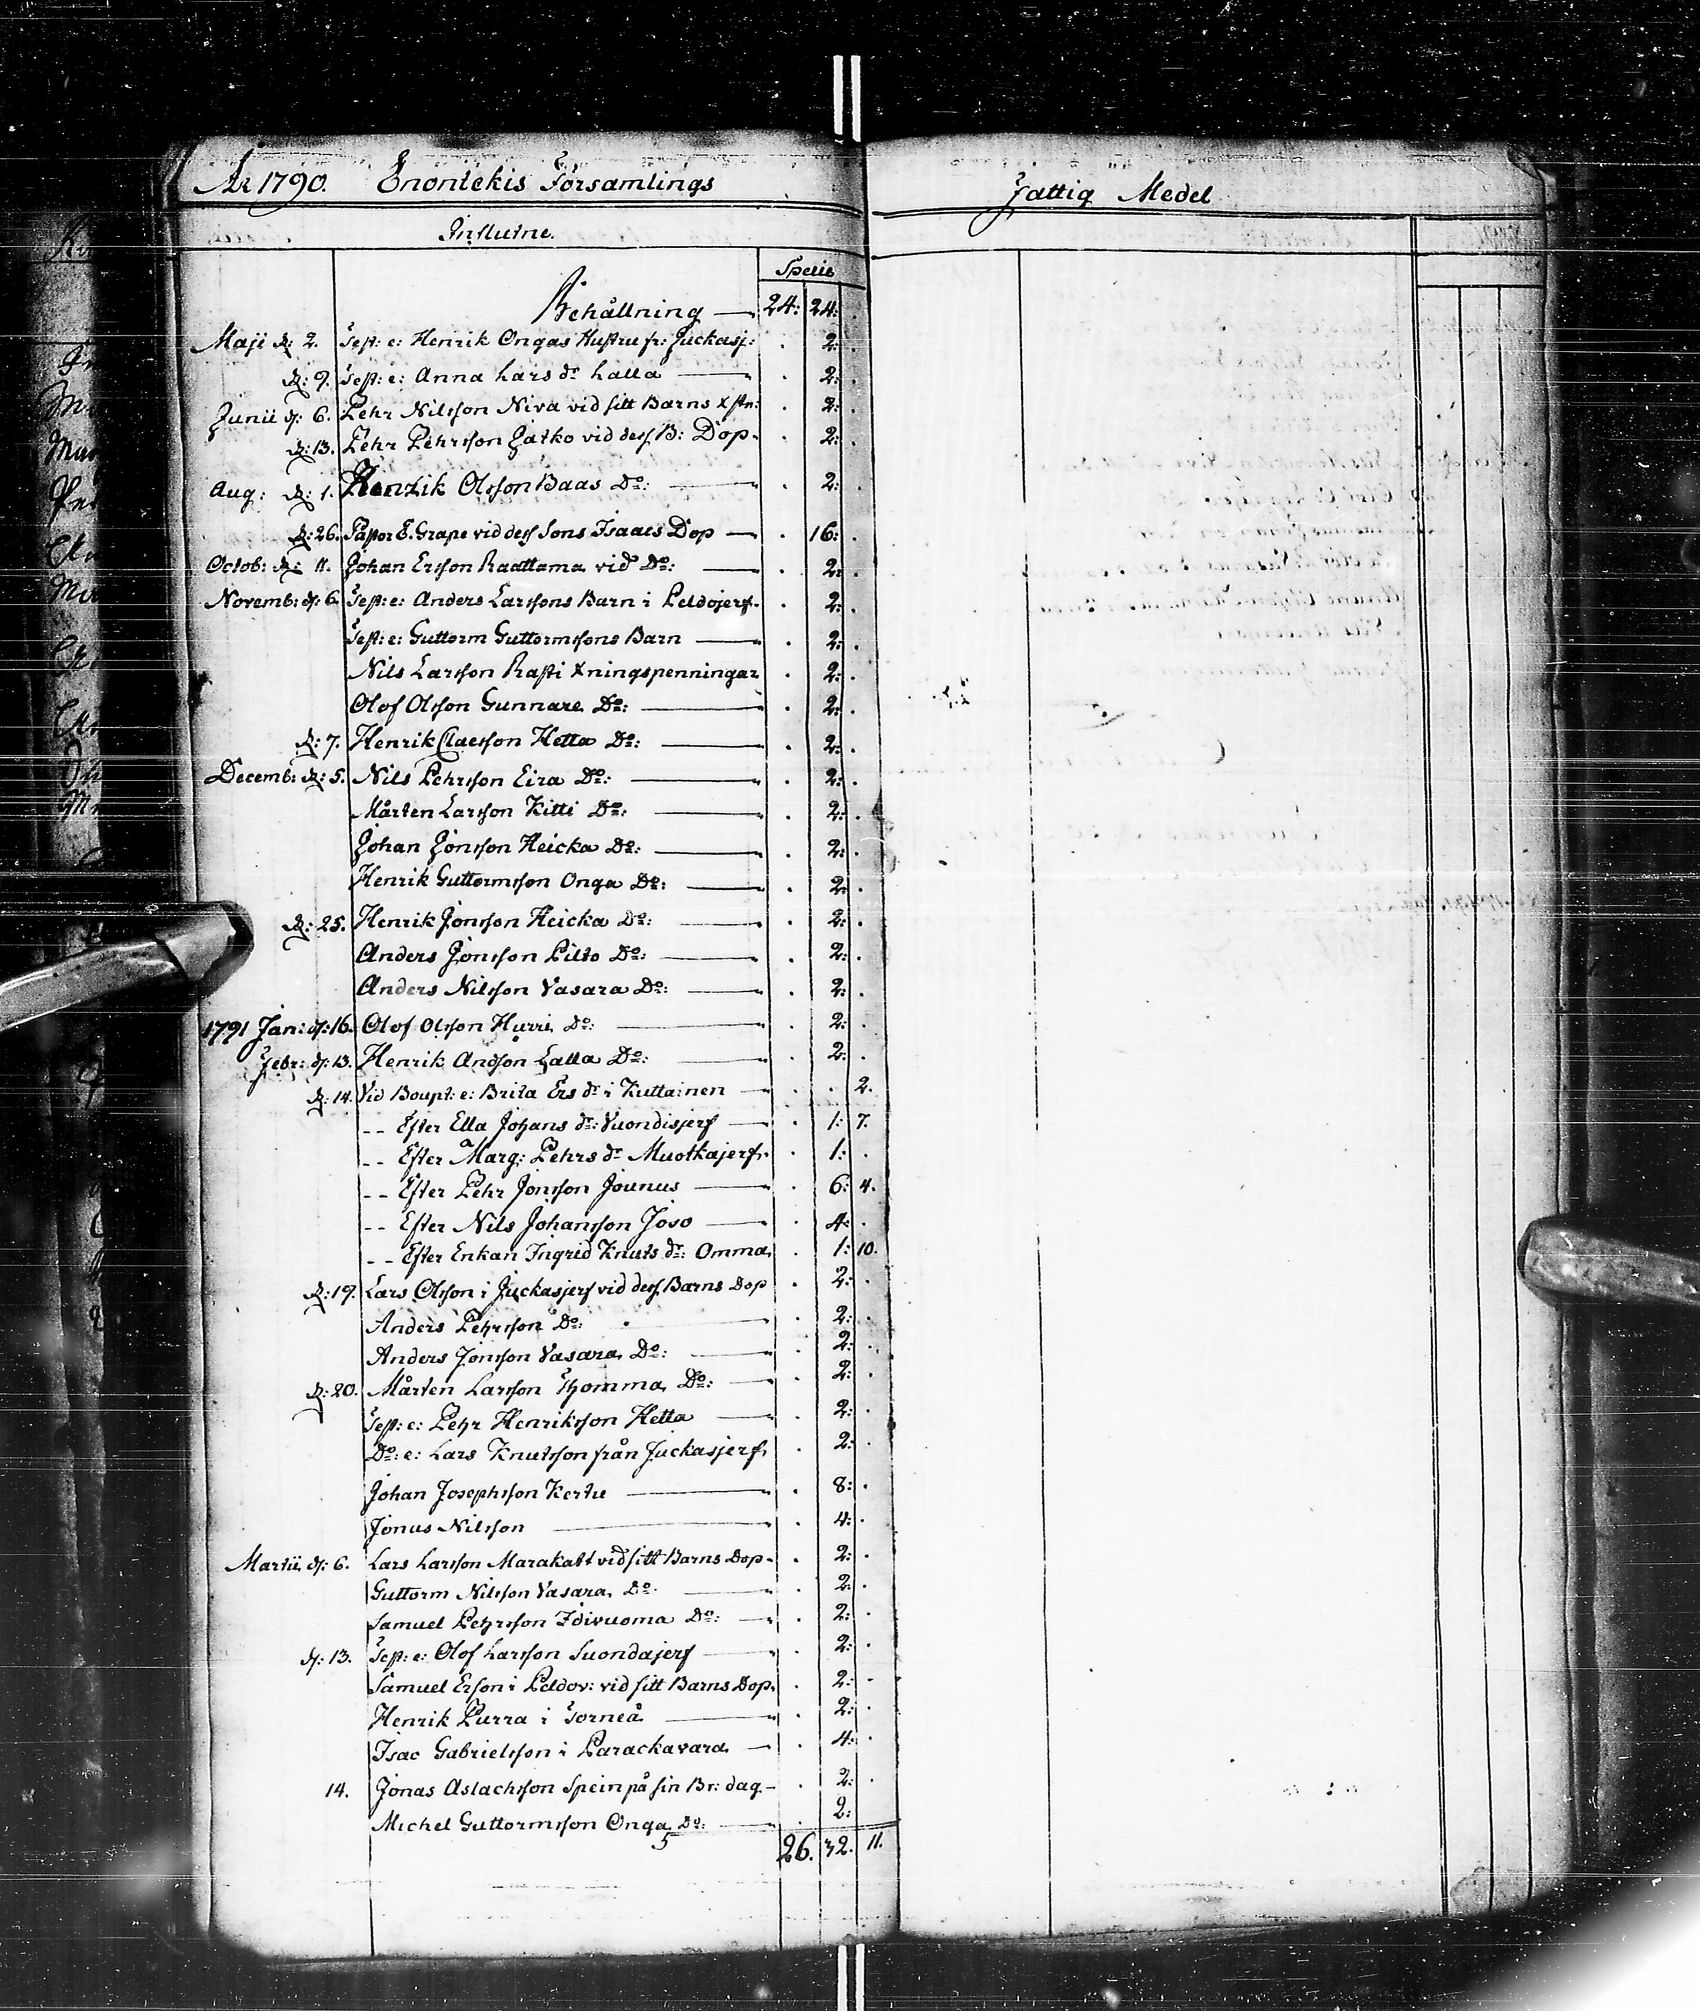 År 1790. Enontekis Församlings Fattig Medel
Influtne.
Specie
Behållning — 24: 24: .
Maji d: 2. Test: e: Henrik Ongas Hustru fr: Juckasj: . 2: .
d: 9. Test: e: Anna Lars dr Lalla — . 2: .
Junii d: 6. Pehr Nilsson Niva vid sitt Barns Xstn: . 2: .
d: 13. Pehr Pehrsson Jatko vid dess B: Dop . 2: .
Aug: d: 1. Henrik Olsson Baas Do: — . 2: .
d: 26. Pastor E. Grape vid dess Sons Isaacs Dop — . 16: .
Octob: d: 11. Johan Ersson Raattama vid Do: — . 2: .
Novemb: d: 6. Test: e: Anders Larssons Barn i Peldojerf . 2: .
Test: e: Guttorm Guttormssons Barn — . 2: .
Nils Larsson Rasti Xningspenningar . 2: .
Olof Olsson Gunnare Do: — . 2: .
d: 7. Henrik Claesson Hetta Do: — . 2: .
Decemb: d: 5. Nils Pehrsson Eira Do: — . 2: .
Mårten Larsson Kitti Do: — . 2: .
Johan Jonsson Heicka Do: — . 2: .
Henrik Guttormsson Onga Do: — . 2: .
d: 25. Henrik Jonsson Heicka Do: — . 2: .
Anders Jonsson Pilto Do: — . 2: .
Anders Nilsson Vasara Do: — . 2: .
1791 Jan: d: 16. Olof Olsson Hurri Do: — . 2: .
Febr: d: 13. Henrik Andsson Lalla Do: — . 2: .
d: 14. Vid Boupt: e: Brita Ers dr i Kuttainen — . . 2.
-- Efter Ella Johans dr: Vuondisjerf — . 1: 7.
-- Efter Marg: Pehrs dr Muotkajerf . 1: .
-- Efter Pehr Jonsson Jounus — . 6: 4.
-- Efter Nils Johansson Joso — . 4: .
-- Efter Enkan Ingrid Knuts dr: Omma . 1: 10.
d: 19. Lars Olsson i Juckasjerf vid dess Barns Dop . 2: .
Anders Pehrsson Do: — . 2: .
Anders Jonsson Vasara Do: — . 2: .
d: 20. Mårten Larsson Thomma Do: — . 2: .
Test: e: Pehr Henriksson Hetta — . 2: .
Do: e: Lars Knutsson från Juckasjerf . 2: .
Johan Josephsson Kertu — . 8: .
Jonus Nilsson — . 4: .
Martii d: 6. Lars Larsson Marakatt vid sitt Barns Dop . 2: .
Guttorm Nilsson Vasara Do: — . 2: .
Samuel Pehrsson Idivuoma Do: — . 2: .
d: 13. Test: e: Olof Larsson Suondajerf — . 2: .
Samuel Ersson i Peldov: vid sitt Barns Dop . 2: .
Henrik Purra i Torneå — . 2: .
Isac Gabrielsson i Parackavara — . 4: .
14. Jonas Aslachsson Spein på sin Br: dag — . 2: .
Michel Guttormsson Onga Do: — . 2:
26. 32. 11.